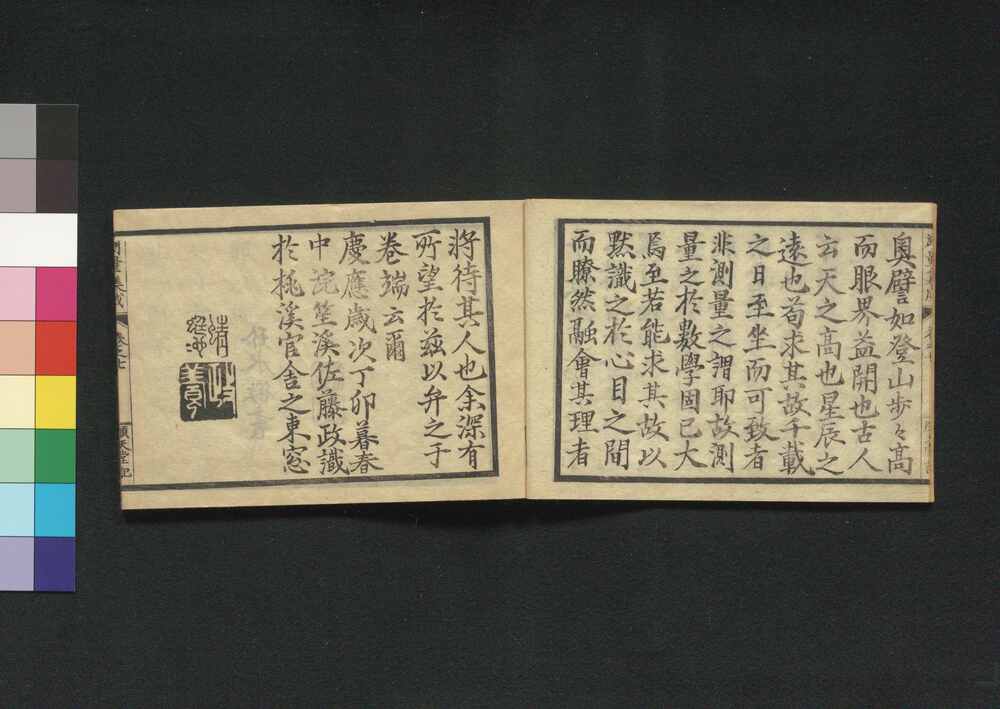 奧譬如登山步々高
而眼界益開也古人
云天之高也星辰之
遠也苟求其故千載
之日至坐而可致者
非測量之謂耶故測
量之於數學固已大
焉至若能求其故以
默識之於心目之間
而瞭然融會其理者
將待其人也余深有
所望於茲以弁之于
卷端云爾
慶應歲次丁卯暮春
中浣竺溪佐藤政識
於桃溪官舍之東窓